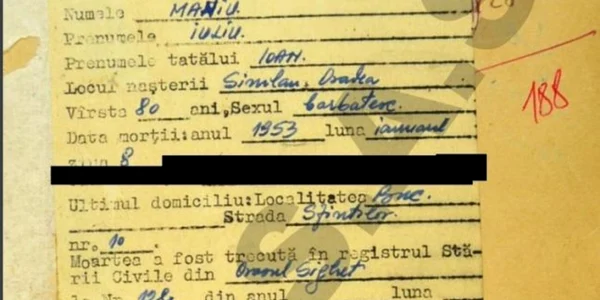 Numele MANIU.
Prenumele IULIU.
Prenumele tatălui IOAN.
Locul nașterii Simlau, Oradea
Vîrsta 80 ani, Sexul barbatesc.
Data morții: anul 1953 luna ianuarie
ziua 8
Ultimul domiciliu: Localitatea
Strada Sfintilor.
nr. 10
Moartea a fost trecută în registrul Stă-
rii Civile din Orasul Sighet
la Nr. din anul luna
188